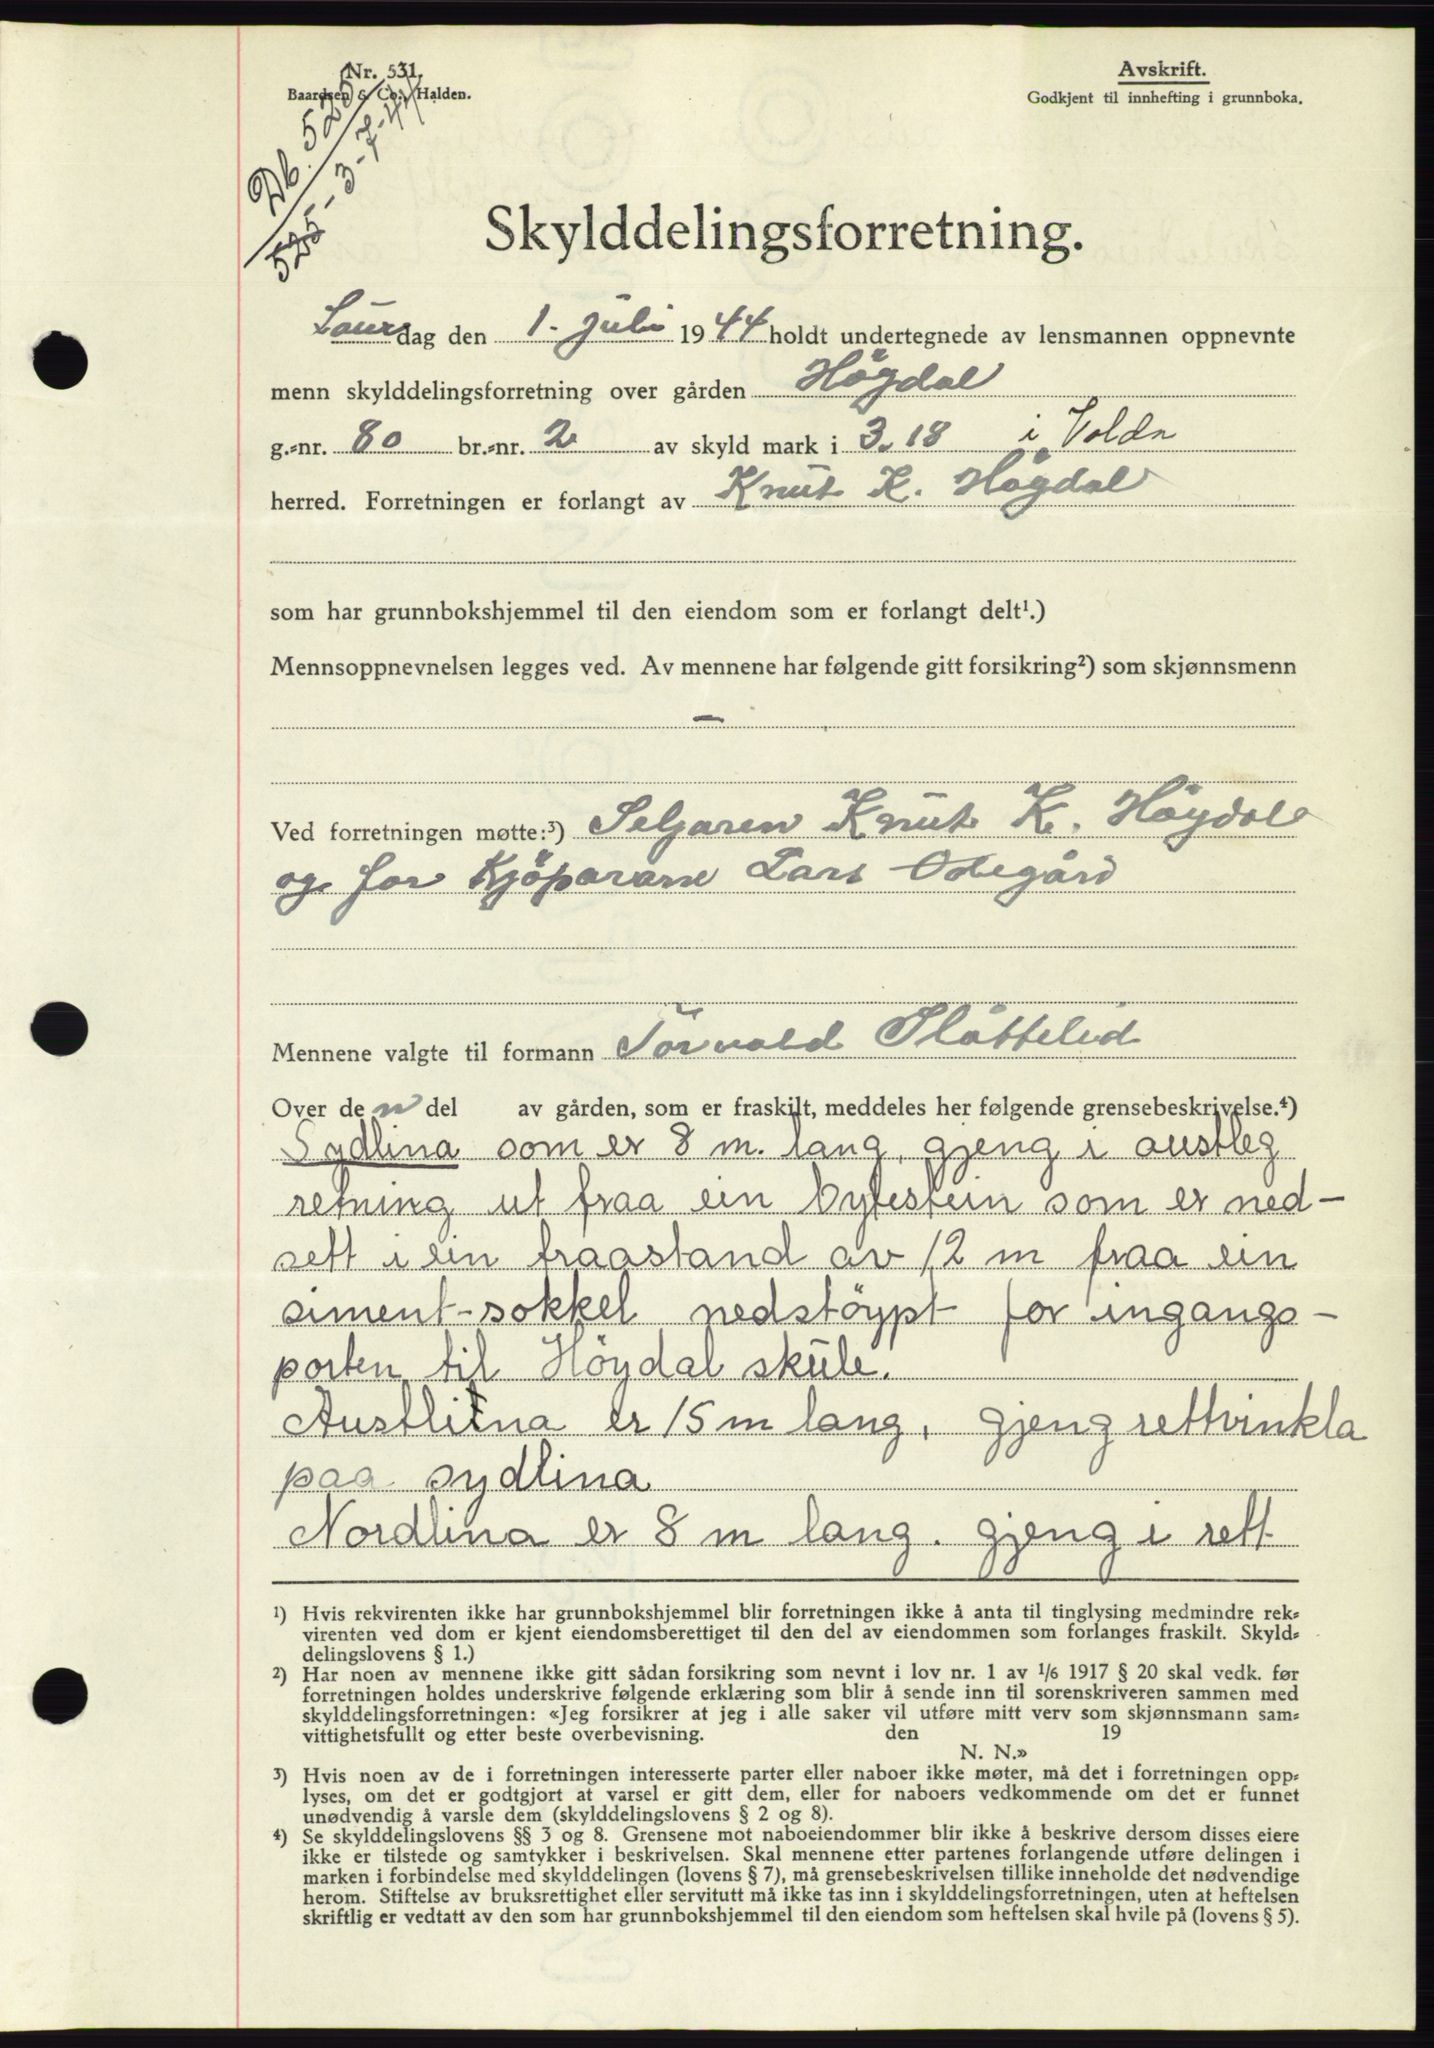 Nr. 531.
Baardsen & Co., Halden.
Avskrift.
Godkjent til innhefting i grunnboka.
Db. 525
525 - 3-7-44
Skylddelingsforretning.
Laurdag den 1. juli 1944 holdt undertegnede av lensmannen oppnevnte
menn skylddelingsforretning over gården Högdal
g.=nr. 80 br.=nr. 2 av skyld mark i 3.18 i Volda
herred. Forretningen er forlangt av Knut K. Högdal
som har grunnbokshjemmel til den eiendom som er forlangt delt¹.)
Mennsoppnevnelsen legges ved. Av mennene har følgende gitt forsikring²) som skjønnsmenn
—
Ved forretningen møtte:³) Seljaren Knut K. Höydal
og for Kjöparane Lars Odegård
Mennene valgte til formann Torvald Slåttelid
Over den del av gården, som er fraskilt, meddeles her følgende grensebeskrivelse.⁴)
Sydlina som er 8 m. lang, gjeng i austleg
retning ut fraa ein bytestein som er ned-
sett i ein fraastand av 12 m fraa ein
siment-sokkel nedstöypt for ingangs-
porten til Höydal skule.
Austlina er 15 m lang, gjeng rettvinkla
paa sydlina
Nordlina er 8 m lang. gjeng i rett
¹) Hvis rekvirenten ikke har grunnbokshjemmel blir forretningen ikke å anta til tinglysing medmindre rek=
virenten ved dom er kjent eiendomsberettiget til den del av eiendommen som forlanges fraskilt. Skyld=
delingslovens § 1.)
²) Har noen av mennene ikke gitt sådan forsikring som nevnt i lov nr. 1 av 1/6 1917 § 20 skal vedk. før
forretningen holdes underskrive følgende erklæring som blir å sende inn til sorenskriveren sammen med
skylddelingsforretningen: «Jeg forsikrer at jeg i alle saker vil utføre mitt verv som skjønnsmann sam=
vittighetsfullt og etter beste overbevisning. den 19
N. N.»
³) Hvis noen av de i forretningen interesserte parter eller naboer ikke møter, må det i forretningen opp=
lyses, om det er godtgjort at varsel er gitt dem, eller for naboers vedkommende om det er funnet
unødvendig å varsle dem (skylddelingslovens § 2 og 8).
⁴) Se skylddelingslovens §§ 3 og 8. Grensene mot naboeiendommer blir ikke å beskrive dersom disses eiere
ikke er tilstede og samtykker i beskrivelsen. Skal mennene etter partenes forlangende utføre delingen i
marken i forbindelse med skylddelingen (lovens § 7), må grensebeskrivelsen tillike inneholde det nødvendige
herom. Stiftelse av bruksrettighet eller servitutt må ikke tas inn i skylddelingsforretningen, uten at heftelsen
skriftlig er vedtatt av den som har grunnbokshjemmel til den eiendom som heftelsen skal hvile på (lovens § 5).